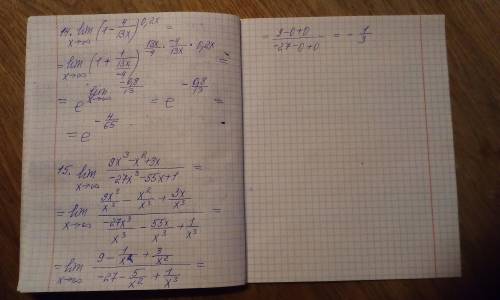 14. lim x→∞ (1 - 4/13x)^0,2x =
= lim x→∞ (1 + 1/(13x/-4))^(13x/-4 · -4/13x · 0,2x) =
= e^(lim x→∞ -0,8/13) = e^(-0,8/13) =
= e^(-4/65)
15. lim x→∞ (9x³ - x² + 3x)/(-27x³ - 55x + 1) =
= lim x→∞ (9x³/x³ - x²/x³ + 3x/x³)/(-27x³/x³ - 55x/x³ + 1/x³) =
= lim x→∞ (9 - 1/x + 3/x²)/(-27 - 5/x² + 1/x³) =
= (9-0+0)/(-27-0+0) = -1/3